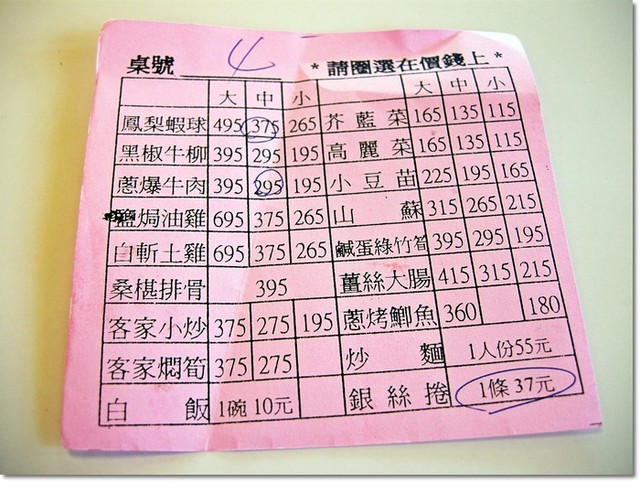 桌號 4 *請圈選在價錢上*
大 中 小 大 中 小
鳳梨蝦球 495 375 265 芥藍菜 165 135 115
黑椒牛柳 395 295 195 高麗菜 165 135 115
蔥爆牛肉 395 295 195 小豆苗 225 195 165
鹽焗油雞 695 375 265 山蘇 315 265 215
白斬土雞 695 375 265 鹹蛋綠竹筍 395 295 195
桑椹排骨 395 薑絲大腸 415 315 215
客家小炒 375 275 195 蔥烤鯽魚 360 180
客家燜筍 375 275 炒麵 1人份55元
白飯 1碗 10元 銀絲捲 1條 37元